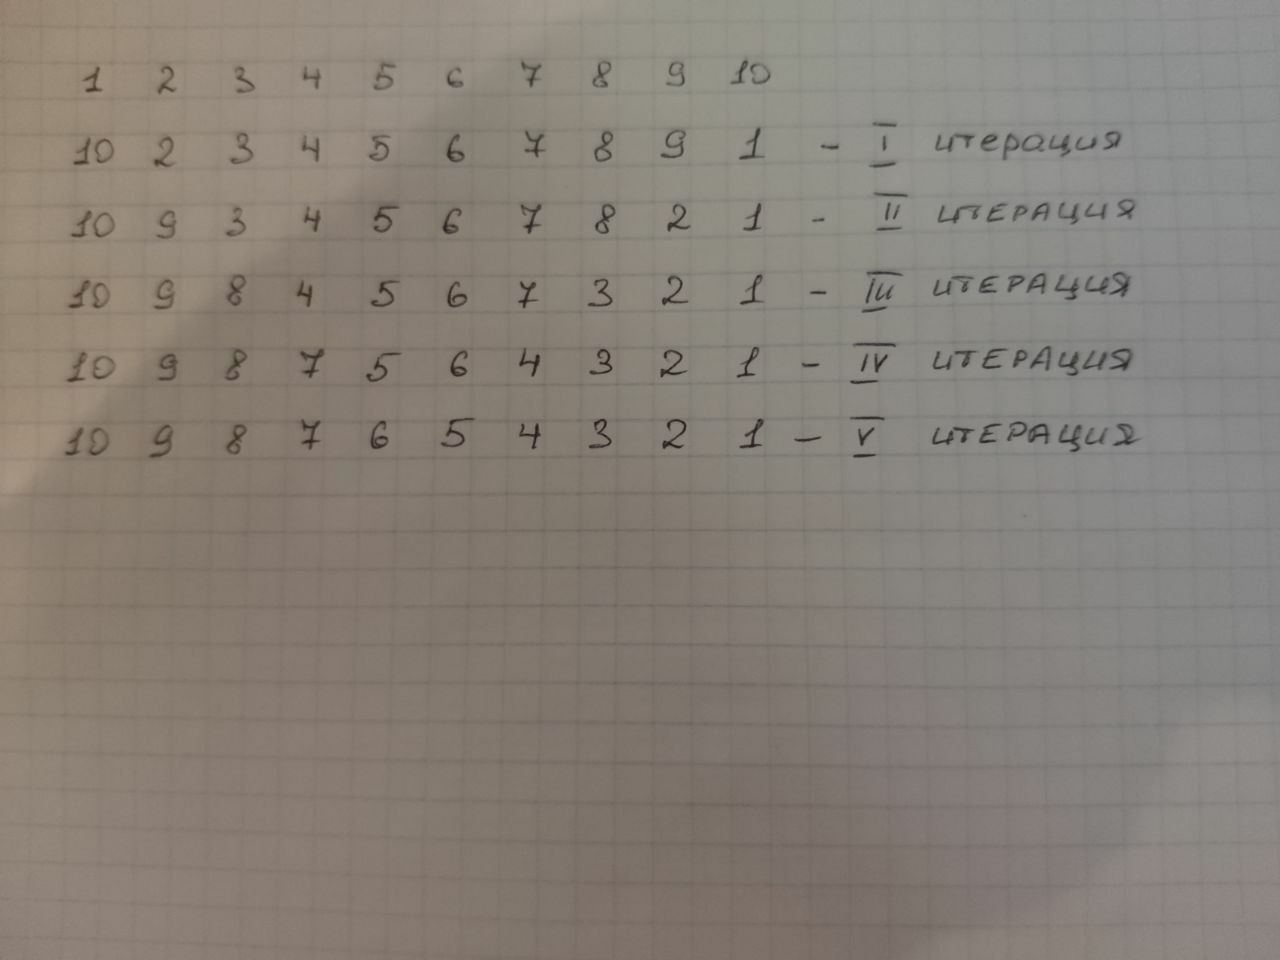 1 2 3 4 5 6 7 8 9 10
10 2 3 4 5 6 7 8 9 1 - I итерация
10 9 3 4 5 6 7 8 2 1 - II ИТЕРАЦИЯ
10 9 8 4 5 6 7 3 2 1 - III ИТЕРАЦИЯ
10 9 8 7 5 6 4 3 2 1 - IV ИТЕРАЦИЯ
10 9 8 7 6 5 4 3 2 1 - V ИТЕРАЦИЯ